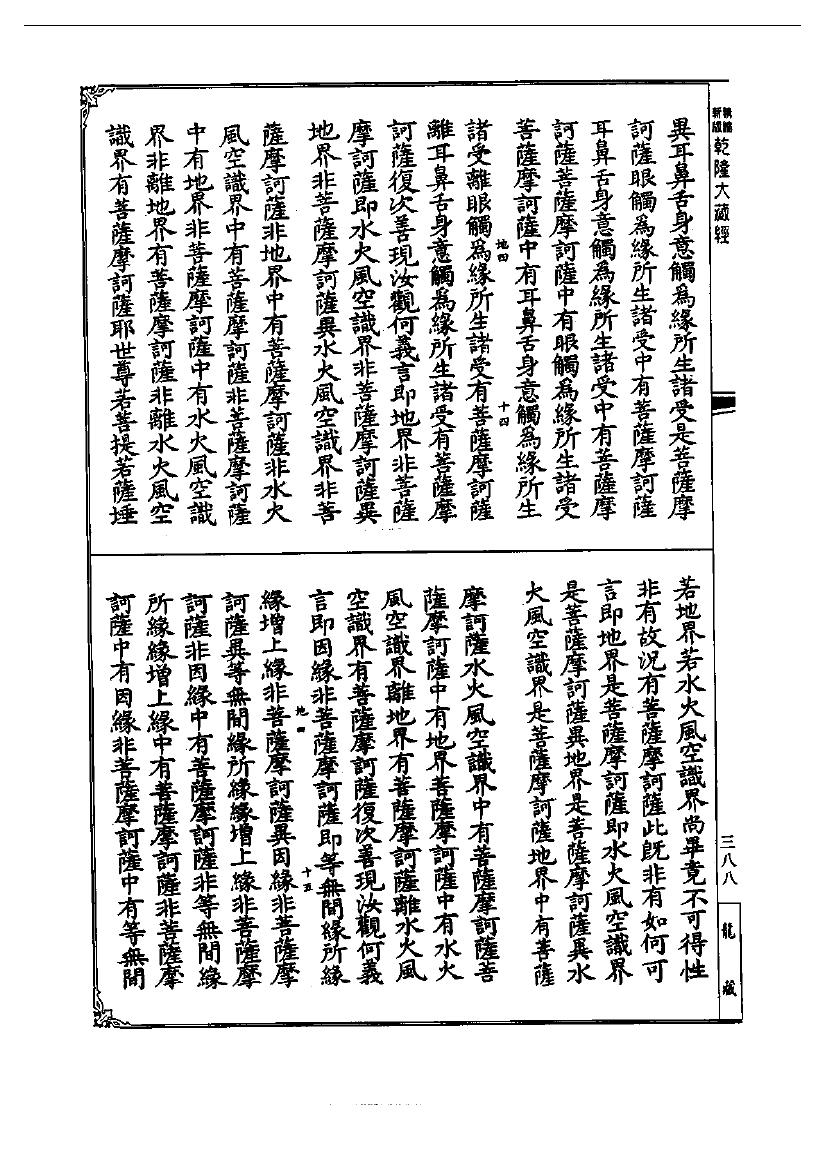 新編
新版
乾隆大藏經
異耳鼻舌身意觸為緣所生諸受是菩薩摩
訶薩眼觸為緣所生諸受中有菩薩摩訶薩
耳鼻舌身意觸為緣所生諸受中有菩薩摩
訶薩菩薩摩訶薩中有眼觸為緣所生諸受
菩薩摩訶薩中有耳鼻舌身意觸為緣所生
地四
十四
諸受離眼觸為緣所生諸受有菩薩摩訶薩
離耳鼻舌身意觸為緣所生諸受有菩薩摩
訶薩復次善現汝觀何義言即地界非菩薩
摩訶薩即水火風空識界非菩薩摩訶薩異
地界非菩薩摩訶薩異水火風空識界非菩
薩摩訶薩非地界中有菩薩摩訶薩非水火
風空識界中有菩薩摩訶薩非菩薩摩訶薩
中有地界非菩薩摩訶薩中有水火風空識
界非離地界有菩薩摩訶薩非離水火風空
識界有菩薩摩訶薩耶世尊若菩提若薩埵
若地界若水火風空識界尚畢竟不可得性
非有故況有菩薩摩訶薩此既非有如何可
言即地界是菩薩摩訶薩即水火風空識界
是菩薩摩訶薩異地界是菩薩摩訶薩異水
火風空識界是菩薩摩訶薩地界中有菩薩
摩訶薩水火風空識界中有菩薩摩訶薩菩
薩摩訶薩中有地界菩薩摩訶薩中有水火
風空識界離地界有菩薩摩訶薩離水火風
空識界有菩薩摩訶薩復次善現汝觀何義
言即因緣非菩薩摩訶薩即等無間緣所緣
地四
十五
緣增上緣非菩薩摩訶薩異因緣非菩薩摩
訶薩異等無間緣所緣緣增上緣非菩薩摩
訶薩非因緣中有菩薩摩訶薩非等無間緣
所緣緣增上緣中有菩薩摩訶薩非菩薩摩
訶薩中有因緣非菩薩摩訶薩中有等無間
三八八
龍藏